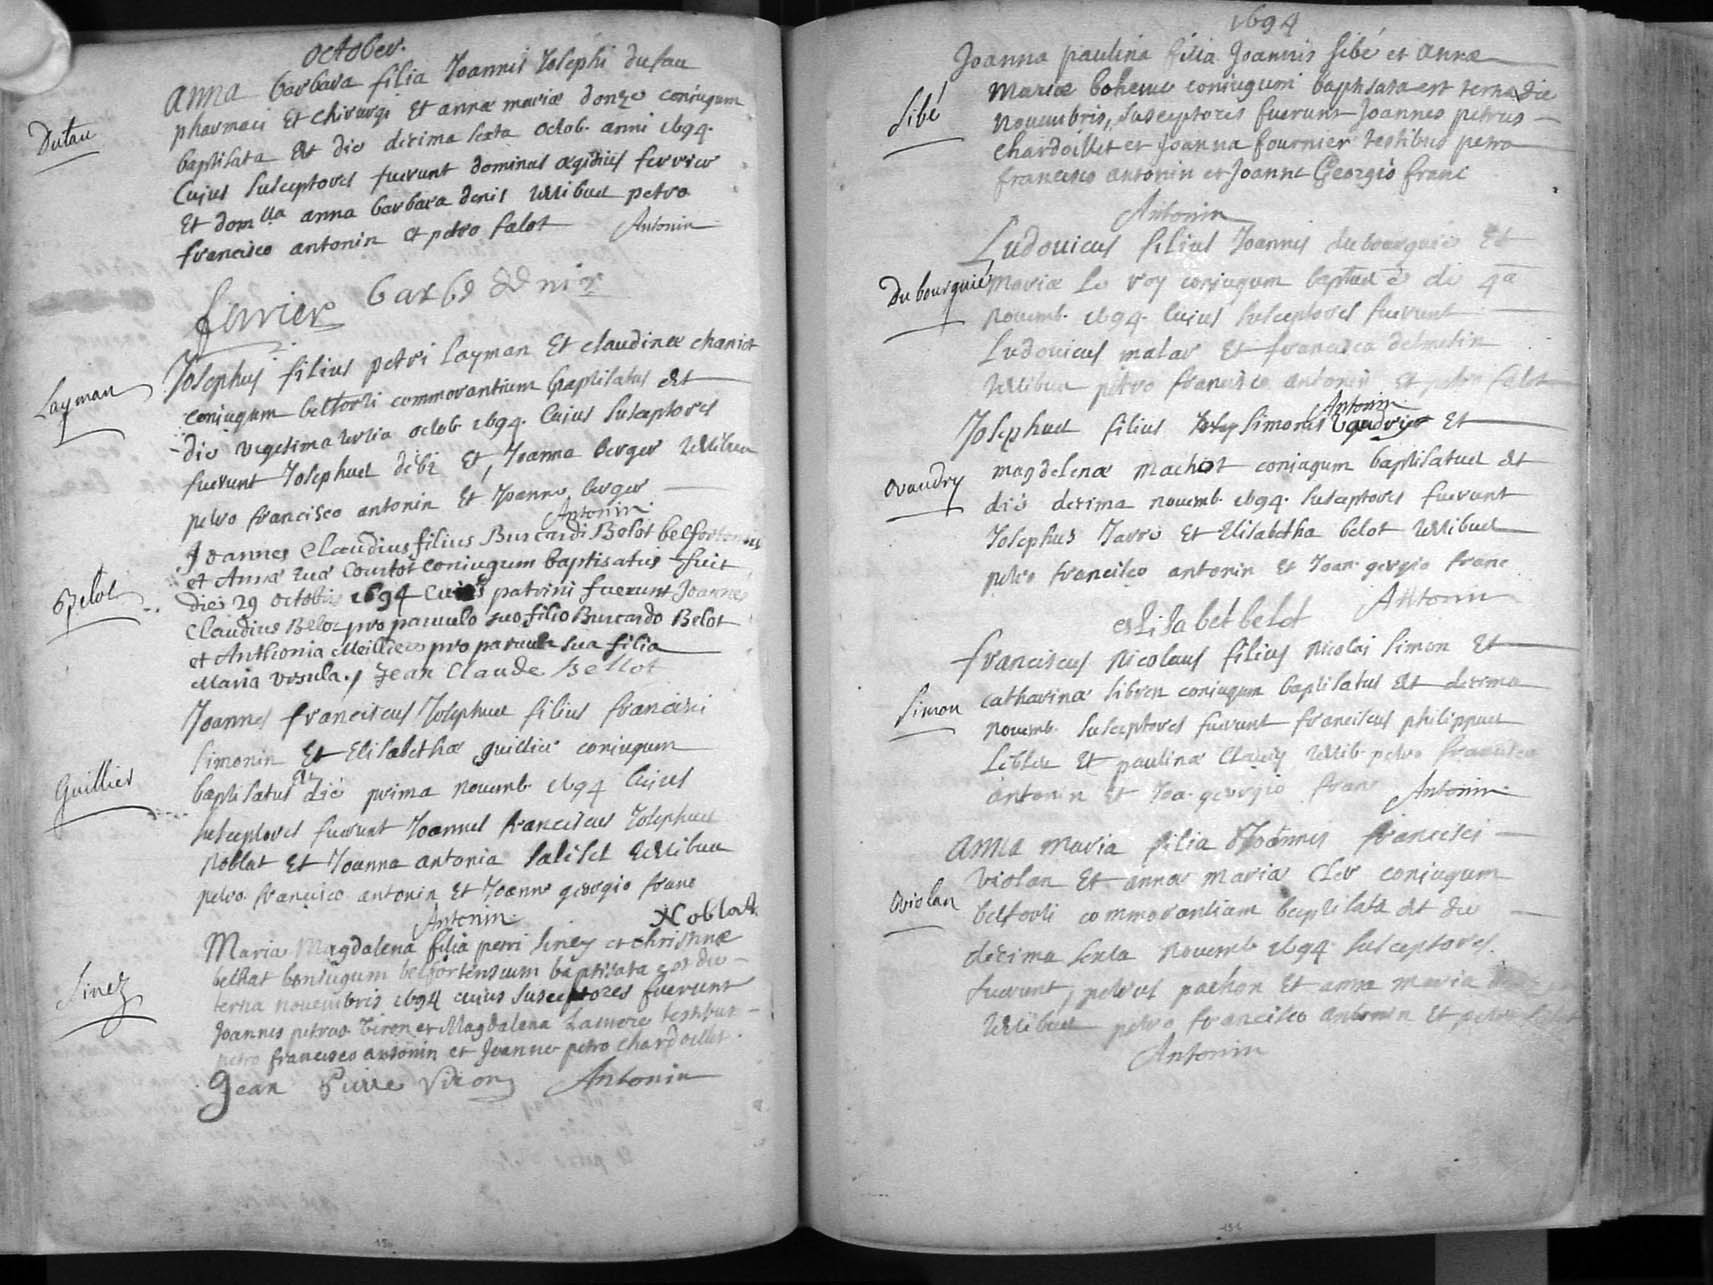 October.
Anna barbara filia Joannis Josephi dutau
Dutau
pharmaci Et chirurgi Et annæ mariæ donze coniugum
baptisata Est die decima sexta octob. anni 1694.
Cujus susceptores fuerunt dominus ægidius ferrier
Et dom.lla anna barbara denis testibus petro
francisco antonin et petro falot Antonin
ferrier barbe denir
Josephus filius petri Layman Et claudinæ chaniot
Layman
coniugum belforti commorantium baptisatus est
die vigesima tertia octob. 1694. Cujus susceptores
fuerunt Josephus debi Et Joanna berger testibus
petro francisco antonin Et Joanne berger
Antonin
Joannes Claudius filius Burcardi Belot belfortensis
et Annæ Evæ Courtot coniugum baptisatus fuit
Belot
die 29 octobris 1694 Cuius patrini fuerunt Joannes
Claudius Belot pro parvulo suo filio Burcardo Belot
et Anthonia Meillier pro parvula sua filia
Maria Ursula. Jean Claude Bellot
Joannes franciscus Josephus filius francisci
Simonin Et Elisabethæ guillier coniugum
Guillier
baptisatus est die prima novemb. 1694 Cujus
susceptores fuerunt Joannes franciscus Josephus
Noblat Et Joanna antonia
petro francisco antonin Et Joanne georgio franc
Antonin Noblat
Maria Magdalena filia petri siney et christinæ
belhat coniugum belfortensium baptisata est die
Sinez
tertia novembris 1694 cuius susceptores fuerunt
Joannes petrus et Magdalena Lamere testibus
petro francisco antonin et Joanne petro chardoillet.
Jean Pierre Antonin
1694
Joanna paulina filia Joannis sibé et annæ
Mariæ boheme coniugum baptisata est tertia die
Sibé
novembris, susceptores fuerunt Joannes petrus
chardoillet et Joanna fournier testibus petro
francisco antonin et Joanne Georgio franc
Antonin
Ludovicus filius Joannis dubourguié Et
Dubourguié
Mariæ Le roy coniugum die 4a
novemb. 1694. Cujus susceptores fuerunt
Ludovicus malar Et francisca delmelin
testibus petro francisco antonin Et petro falot
Antonin
Josephus filius Simonis Vaudrier Et
Vaudry
magdelenæ machiot coniugum baptisatus est
die decima novemb. 1694. susceptores fuerunt
Josephus Jarre Et Elisabetha belot testibus
petro francisco antonin Et Joan. georgio franc
Antonin
eslisabet belot
franciscus nicolaus filius nicolai simon Et
Simon
catharinæ coniugum baptisatus est decima
novemb. susceptores fuerunt franciscus philippus
Et paulina testib. petro francisco
antonin Et Joa. georgio franc Antonin
Anna maria filia Joannis francisci
violan Et annæ mariæ Cler coniugum
violan
belforti commorantium baptisata est die
decima sexta novemb 1694. susceptores.
fuerunt, petrus pachon Et anna maria
testibus petro francisco antonin Et petro falot
Antonin